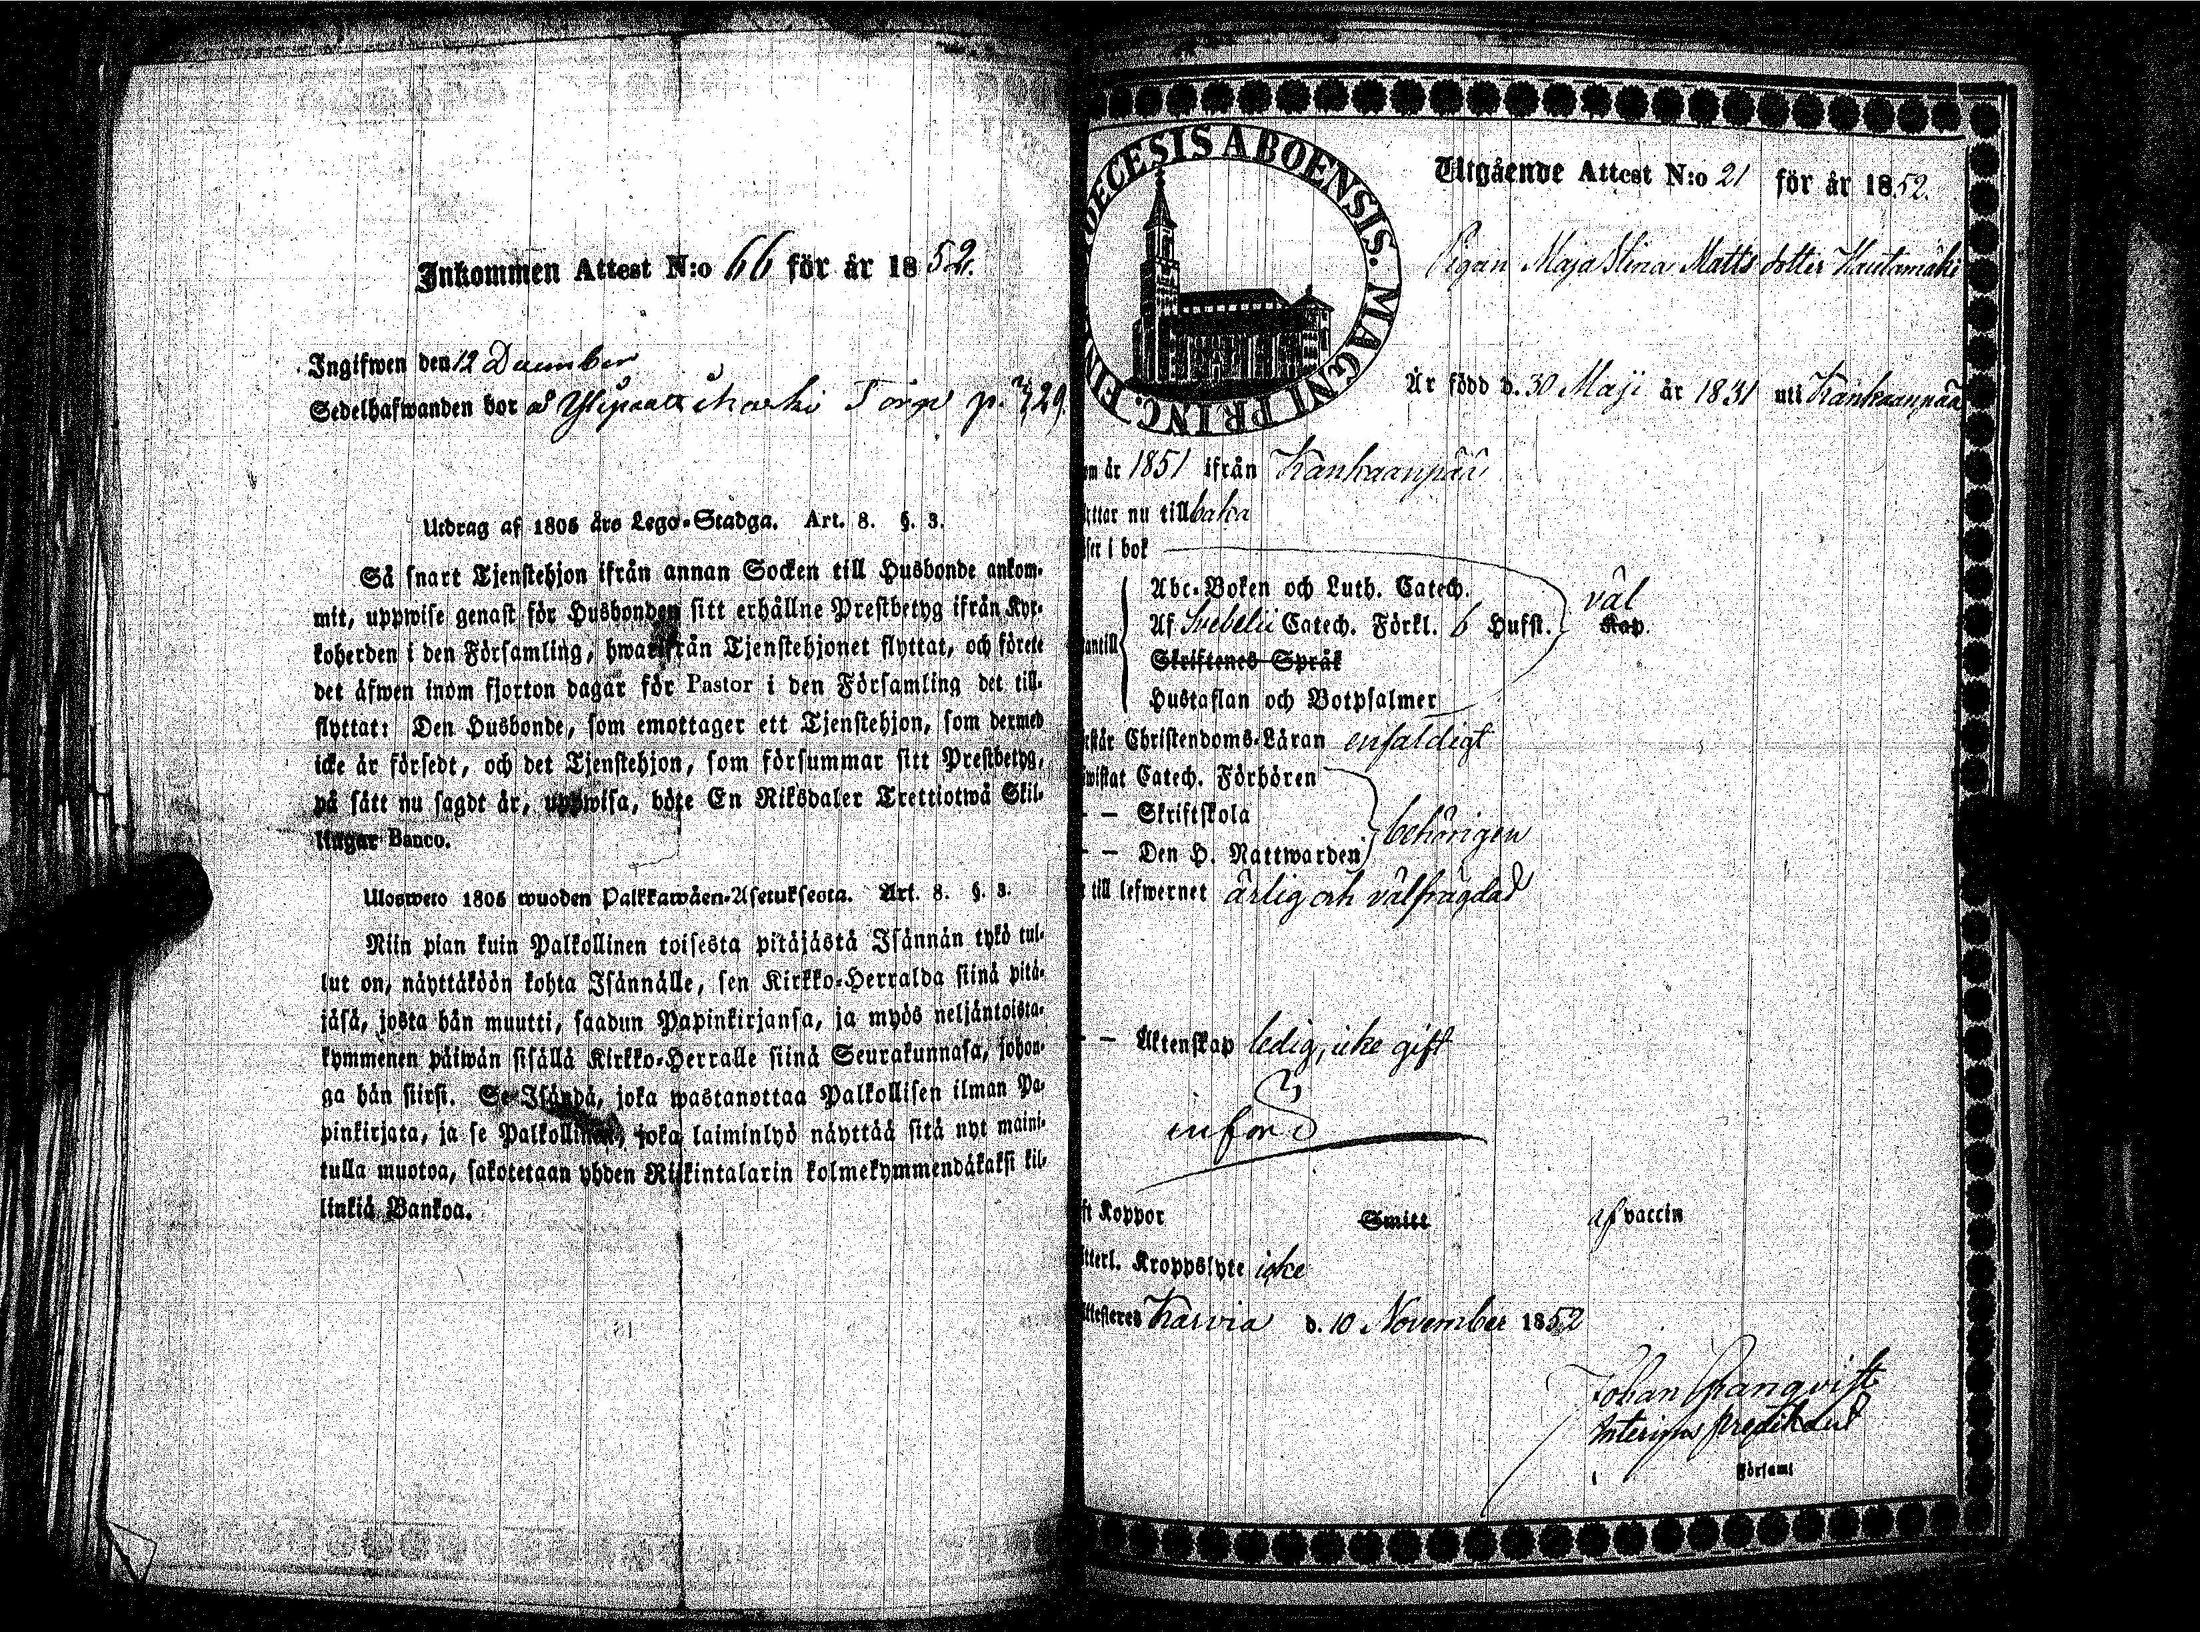 Inkommen Attest N:o 66 för år 1852.
Ingifwen den 12 December
Sedelhafwanden bor å Torp p. 729.
Utdrag af 1805 års Lego-Stadga. Art. 8. §. 3.
Så snart Tjenstehjon ifrån annan Socken till Husbonde ankom-
mit, uppwise genast för Husbonden sitt erhållne Prestbetyg ifrån Kyr-
koherden i den Församling, hwarifrån Tjenstehjonet flyttat, och förete
det äfwen inom fjorton dagar för Pastor i den Församling det till-
flyttat: Den Husbonde, som emottager ett Tjenstehjon, som dermed
icke är försedt, och det Tjenstehjon, som försummar sitt Prestbetyg,
på sätt nu sagdt är, uppwisa, böte En Riksdaler Trettiotwå Skil-
lingar Banco.
Ulosweto 1805 wuoden Palkkawäen-Asetuksesta. Art. 8. §. 3.
Niin pian kuin Palkollinen toisesta pitäjästä Isännän tykö tul-
lut on, näyttäköön kohta Isännälle, sen Kirkko-Herralda siinä pitä-
jäsä, josta hän muutti, saadun Papinkirjansa, ja myös neljäntoista-
kymmenen päiwän sisällä Kirkko-Herralle siinä Seurakunnasa, johon-
ga hän siirsi. Se Isändä, joka wastanottaa Palkollisen ilman Pa-
pinkirjata, ja se Palkollinen, joka laiminlyö näyttää sitä nyt maini-
tulla muotoa, sakotetaan yhden Riikintalarin kolmekymmendäkaksi kil-
linkiä Bankoa.
DŒCESIS ABOENSIS. MAGNI PRINC. FIN
Utgående Attest N:o 21 för år 1852.
Pigan Maja Stina Matts dotter Kautamäki
Är född d. 30 Maji år 1831 uti Kankaanpää
om år 1851 ifrån Kankaanpää
ttar nu tillbaka
ser i bok
Abc-Boken och Luth. Catech.
väl
Af Svebelii Catech. Förkl. 6 Hufst. Kap.
antill
Skriftenes Språk
Hustaflan och Botpsalmer
står Christendoms-Läran enfaldigt
wistat Catech. Förhören
– – Skriftskola
behörigen
– – Den H. Nattwarden
till lefwernet ärlig och välfrägdad
– – Äktenskap ledig, icke gift
införd
ft Koppor Smitt af vaccin
tterl. Kroppslyte icke
ttesteres Karvia d. 10 November 1852
Johan Granqvist
Interims predikant
Församl